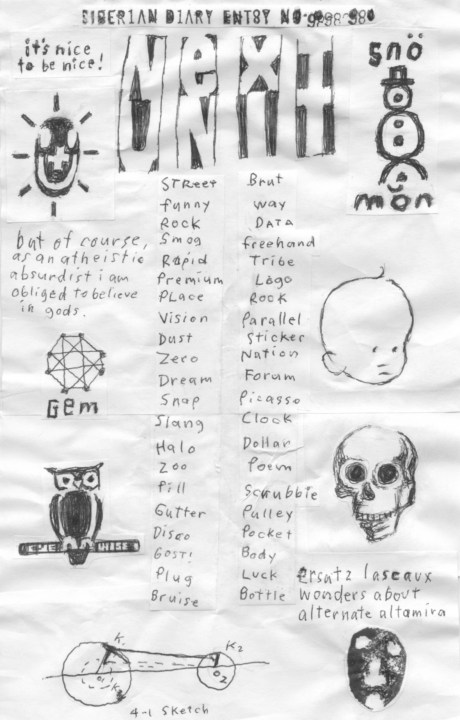 SIBERIAN DIARY ENTSY NO
it's nice
to be nice!
Next
snö
mön
but of course,
as an atheistic
absurdist i am
obliged to believe
in gods.
GEM
WISE
Street
funny
Rock
Smog
Rapid
Premium
Place
Vision
Dust
Zero
Dream
Snap
Slang
Halo
Zoo
Pill
Gutter
Disco
GOST!
Plug
Bruise
Brut
way
DATA
freehand
Tribe
Logo
Rock
Parallel
Sticker
Nation
Forum
Picasso
Clock
Dollar
Poem
Scrubbie
Pulley
Pocket
Body
Luck
Bottle
ersatz laseaux
wonders about
alternate altamira
K1
K2
O2
4-1 Sketch